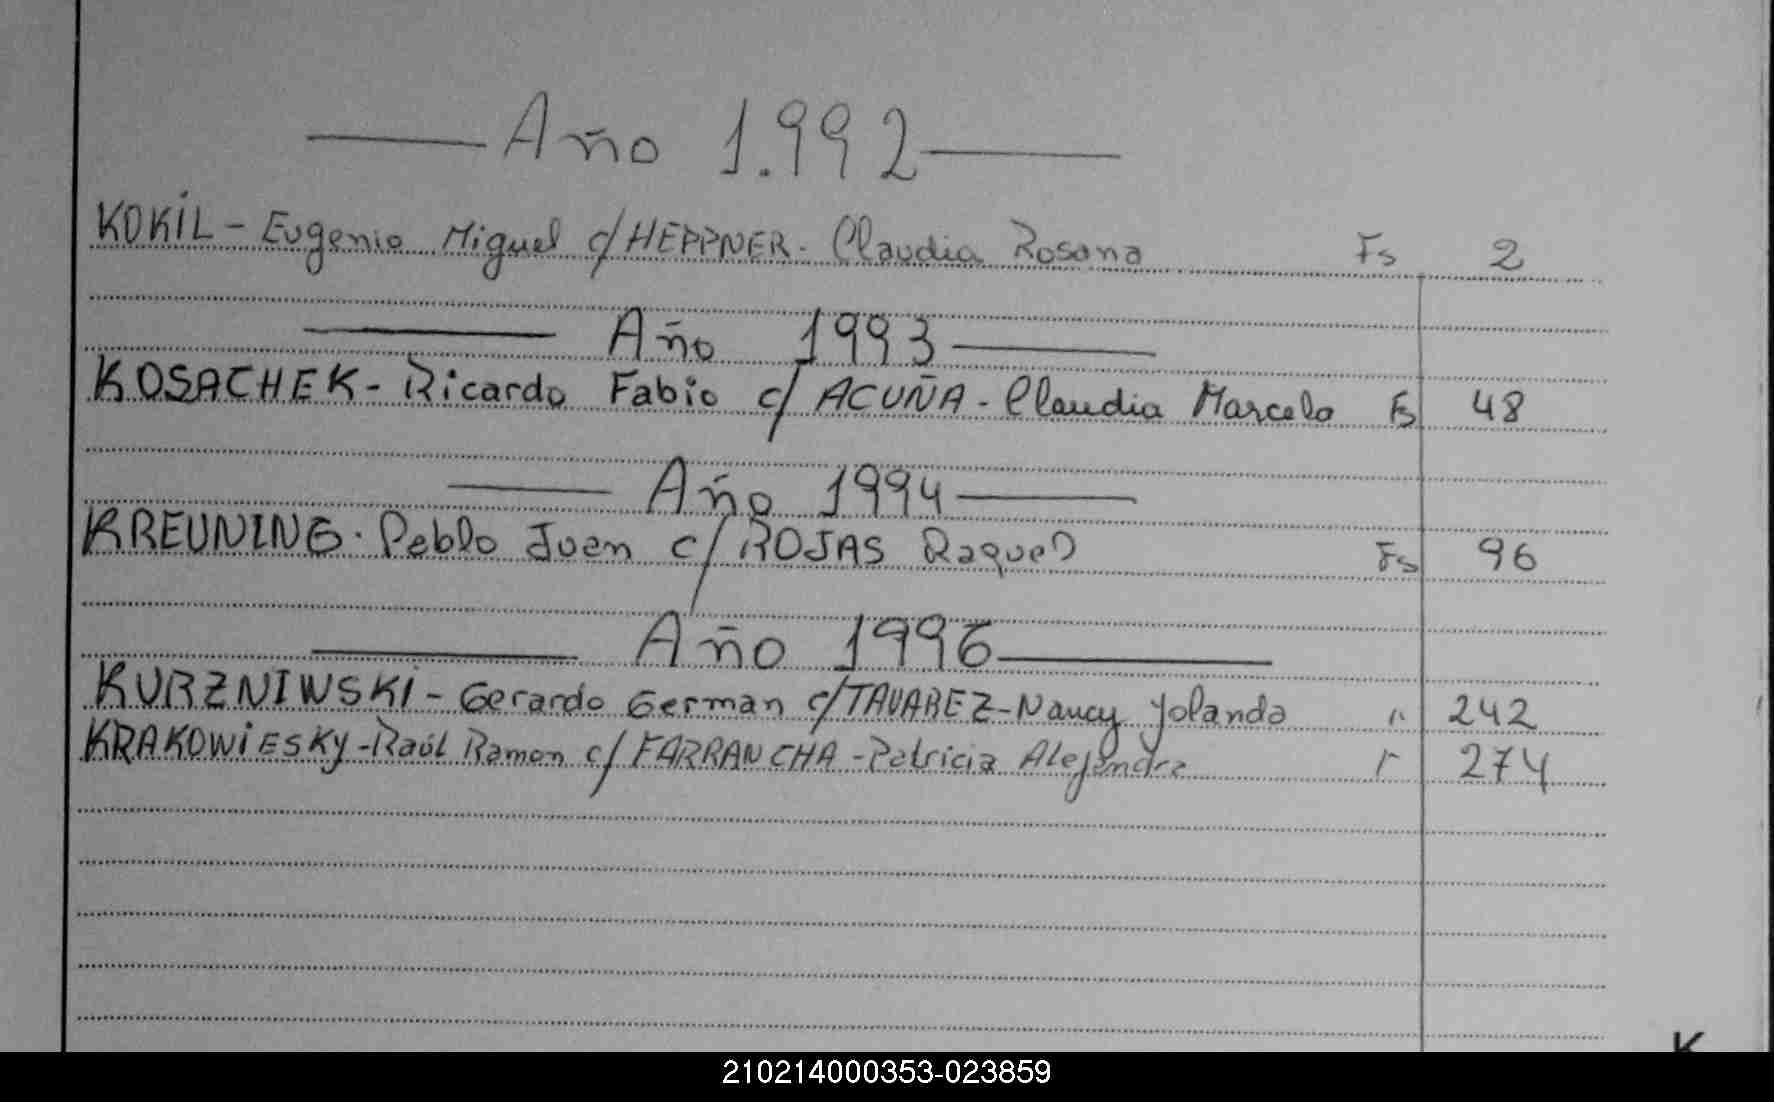 Año 1.992
KOKIL - Eugenio Miguel c/ HEPPNER - Claudia Rosana Fs 2
Año 1993
KOSACHEK - Ricardo Fabio c/ ACUÑA - Claudia Marcela Fs 48
Año 1994
KREUNING - Pablo Juan c/ ROJAS Raquel Fs 96
Año 1996
KURZNIWSKI - Gerardo German c/ TAVAREZ - Nancy Yolanda " 242
KRAKOWIESKY - Raúl Ramon c/ FARRANCHA - Patricia Alejandra " 274
K
210214000353-023859